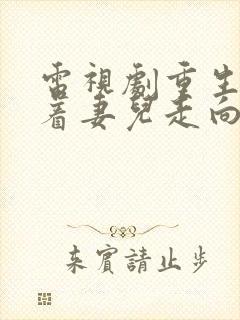 雷視劇重生
着妻兒走向
来賓請止步